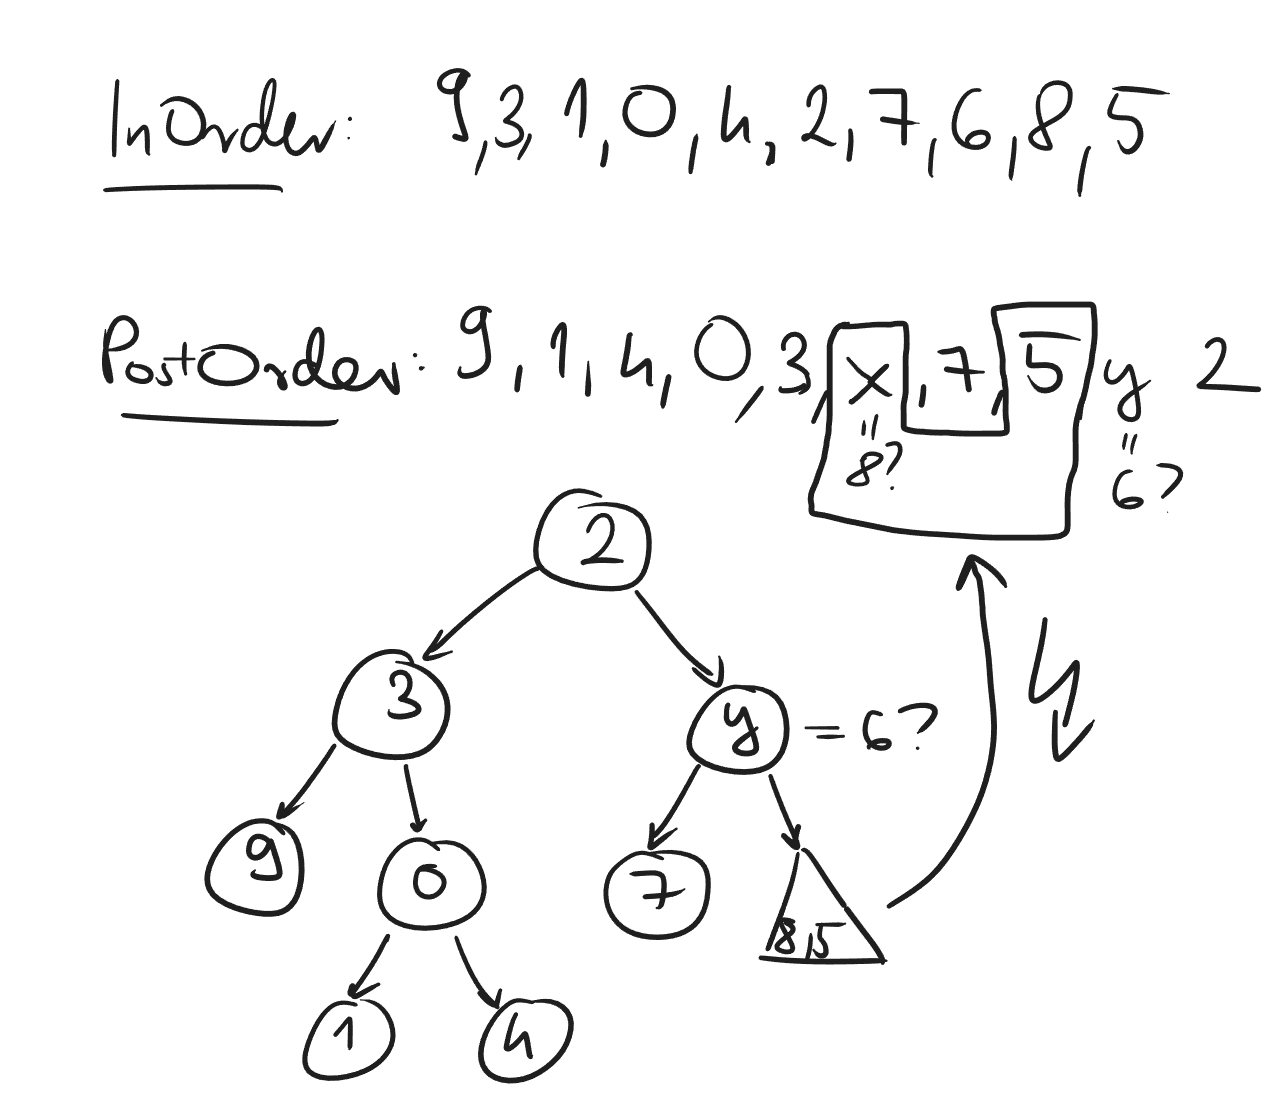 InOrder: 9, 3, 1, 0, 4, 2, 7, 6, 8, 5
PostOrder: 9, 1, 4, 0, 3, x, 7, 5 y 2
= 8?
= 6?
2
3
y = 6?
9
0
7
8, 5
1
4